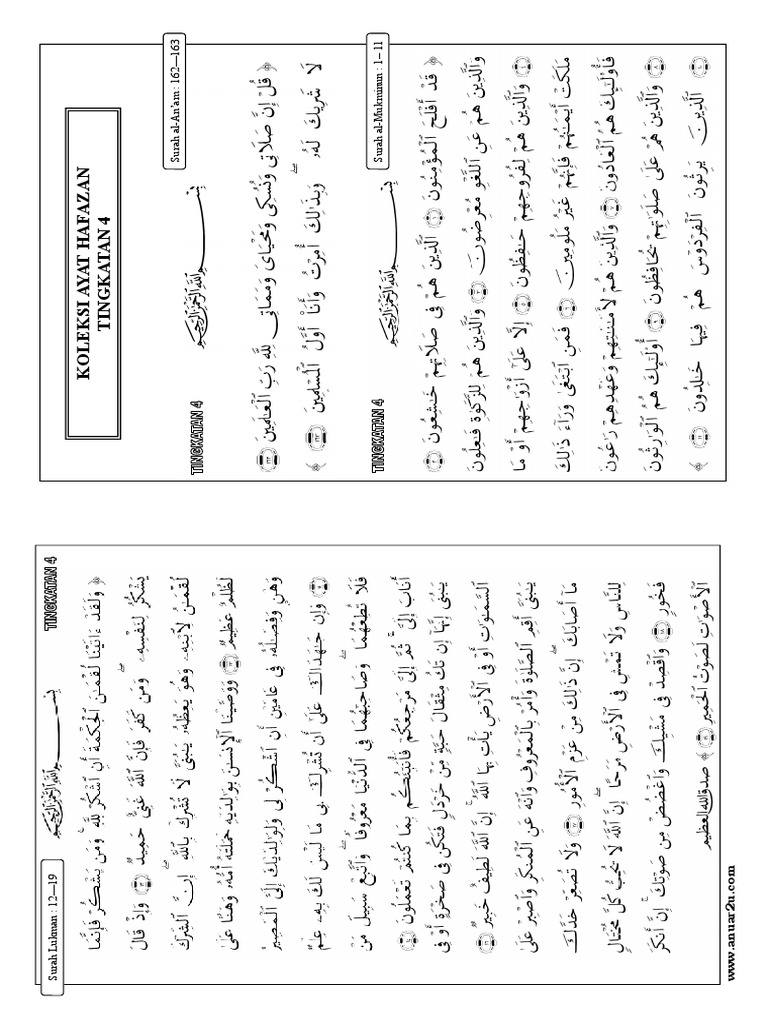 KOLEKSI AYAT HAFAZAN
TINGKATAN 4
Surah al-An'am : 162—163
بِسْمِ ٱللَّهِ ٱلرَّحْمَٰنِ ٱلرَّحِيمِ
TINGKATAN 4
﴿ قُلْ إِنَّ صَلَاتِى وَنُسُكِى وَمَحْيَاىَ وَمَمَاتِى لِلَّهِ رَبِّ ٱلْعَٰلَمِينَ ۝١٦٢
لَا شَرِيكَ لَهُۥ ۖ وَبِذَٰلِكَ أُمِرْتُ وَأَنَا۠ أَوَّلُ ٱلْمُسْلِمِينَ ۝١٦٣ ﴾
Surah al-Mukminun : 1–11
بِسْمِ ٱللَّهِ ٱلرَّحْمَٰنِ ٱلرَّحِيمِ
TINGKATAN 4
﴿ قَدْ أَفْلَحَ ٱلْمُؤْمِنُونَ ۝١ ٱلَّذِينَ هُمْ فِى صَلَاتِهِمْ خَٰشِعُونَ ۝٢
وَٱلَّذِينَ هُمْ عَنِ ٱللَّغْوِ مُعْرِضُونَ ۝٣ وَٱلَّذِينَ هُمْ لِلزَّكَوٰةِ فَٰعِلُونَ
۝٤ وَٱلَّذِينَ هُمْ لِفُرُوجِهِمْ حَٰفِظُونَ ۝٥ إِلَّا عَلَىٰٓ أَزْوَٰجِهِمْ أَوْ مَا
مَلَكَتْ أَيْمَٰنُهُمْ فَإِنَّهُمْ غَيْرُ مَلُومِينَ ۝٦ فَمَنِ ٱبْتَغَىٰ وَرَآءَ ذَٰلِكَ
فَأُو۟لَٰٓئِكَ هُمُ ٱلْعَادُونَ ۝٧ وَٱلَّذِينَ هُمْ لِأَمَٰنَٰتِهِمْ وَعَهْدِهِمْ رَٰعُونَ
۝٨ وَٱلَّذِينَ هُمْ عَلَىٰ صَلَوَٰتِهِمْ يُحَافِظُونَ ۝٩ أُو۟لَٰٓئِكَ هُمُ ٱلْوَٰرِثُونَ
۝١٠ ٱلَّذِينَ يَرِثُونَ ٱلْفِرْدَوْسَ هُمْ فِيهَا خَٰلِدُونَ ۝١١ ﴾
Surah Lukman : 12—19
بِسْمِ ٱللَّهِ ٱلرَّحْمَٰنِ ٱلرَّحِيمِ
TINGKATAN 4
﴿ وَلَقَدْ ءَاتَيْنَا لُقْمَٰنَ ٱلْحِكْمَةَ أَنِ ٱشْكُرْ لِلَّهِ ۚ وَمَن يَشْكُرْ فَإِنَّمَا
يَشْكُرُ لِنَفْسِهِۦ ۖ وَمَن كَفَرَ فَإِنَّ ٱللَّهَ غَنِىٌّ حَمِيدٌ ۝١٢ وَإِذْ قَالَ
لُقْمَٰنُ لِٱبْنِهِۦ وَهُوَ يَعِظُهُۥ يَٰبُنَىَّ لَا تُشْرِكْ بِٱللَّهِ ۖ إِنَّ ٱلشِّرْكَ
لَظُلْمٌ عَظِيمٌ ۝١٣ وَوَصَّيْنَا ٱلْإِنسَٰنَ بِوَٰلِدَيْهِ حَمَلَتْهُ أُمُّهُۥ وَهْنًا عَلَىٰ
وَهْنٍ وَفِصَٰلُهُۥ فِى عَامَيْنِ أَنِ ٱشْكُرْ لِى وَلِوَٰلِدَيْكَ إِلَىَّ ٱلْمَصِيرُ
۝١٤ وَإِن جَٰهَدَاكَ عَلَىٰٓ أَن تُشْرِكَ بِى مَا لَيْسَ لَكَ بِهِۦ عِلْمٌ
فَلَا تُطِعْهُمَا ۖ وَصَاحِبْهُمَا فِى ٱلدُّنْيَا مَعْرُوفًا ۖ وَٱتَّبِعْ سَبِيلَ مَنْ
أَنَابَ إِلَىَّ ۚ ثُمَّ إِلَىَّ مَرْجِعُكُمْ فَأُنَبِّئُكُم بِمَا كُنتُمْ تَعْمَلُونَ ۝١٥
يَٰبُنَىَّ إِنَّهَآ إِن تَكُ مِثْقَالَ حَبَّةٍ مِّنْ خَرْدَلٍ فَتَكُن فِى صَخْرَةٍ أَوْ فِى
ٱلسَّمَٰوَٰتِ أَوْ فِى ٱلْأَرْضِ يَأْتِ بِهَا ٱللَّهُ ۚ إِنَّ ٱللَّهَ لَطِيفٌ خَبِيرٌ ۝١٦
يَٰبُنَىَّ أَقِمِ ٱلصَّلَوٰةَ وَأْمُرْ بِٱلْمَعْرُوفِ وَٱنْهَ عَنِ ٱلْمُنكَرِ وَٱصْبِرْ عَلَىٰ
مَآ أَصَابَكَ ۖ إِنَّ ذَٰلِكَ مِنْ عَزْمِ ٱلْأُمُورِ ۝١٧ وَلَا تُصَعِّرْ خَدَّكَ
لِلنَّاسِ وَلَا تَمْشِ فِى ٱلْأَرْضِ مَرَحًا ۖ إِنَّ ٱللَّهَ لَا يُحِبُّ كُلَّ مُخْتَالٍ
فَخُورٍ ۝١٨ وَٱقْصِدْ فِى مَشْيِكَ وَٱغْضُضْ مِن صَوْتِكَ ۚ إِنَّ أَنكَرَ
ٱلْأَصْوَٰتِ لَصَوْتُ ٱلْحَمِيرِ ۝١٩ ﴾ صدق الله العظيم
www.anuar2u.com